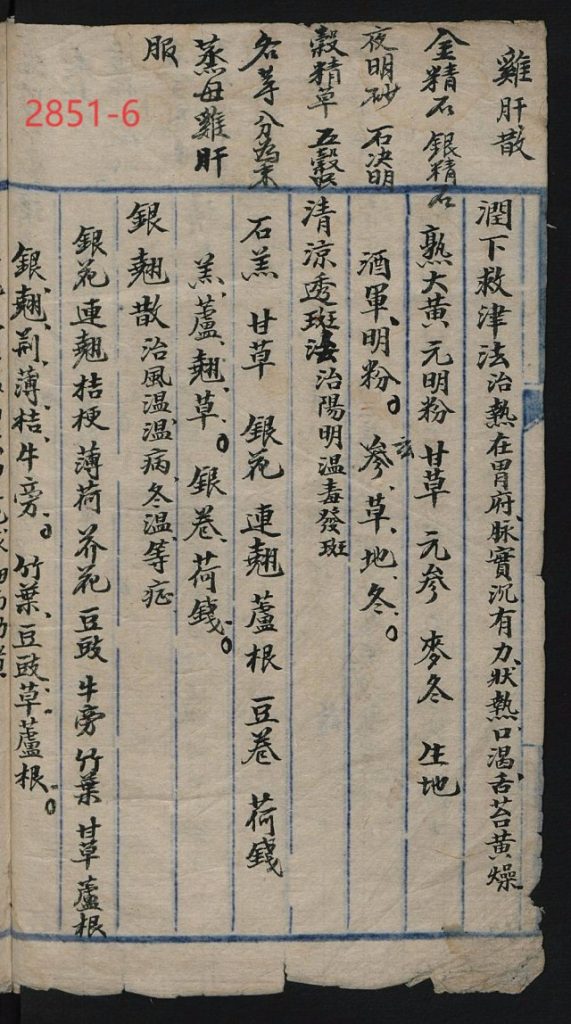 雞肝散
金精石 銀精石
夜明砂 石決明
穀精草 五穀虫
各等分為末
蒸母雞肝
服
2851-6
潤下救津法治熱在胃府、脉實沉有力、狀熱、口渴、舌苔黃燥
熟大黃 元明粉 甘草 元參 麥冬 生地
酒軍、明粉。參、草、地、冬。
玄
清涼透斑法治陽明溫毒發斑
石羔 甘草 銀花 連翹 蘆根 豆卷 荷錢
羔、蘆、翹、草。銀、卷、荷錢。
銀翹散治風温、温病、冬温、等症
銀花 連翹 桔梗 薄荷 芥花 豆豉 牛旁 竹葉 甘草 蘆根
銀、翹、荊、薄、桔、牛旁。竹葉、豆豉、草、蘆根。